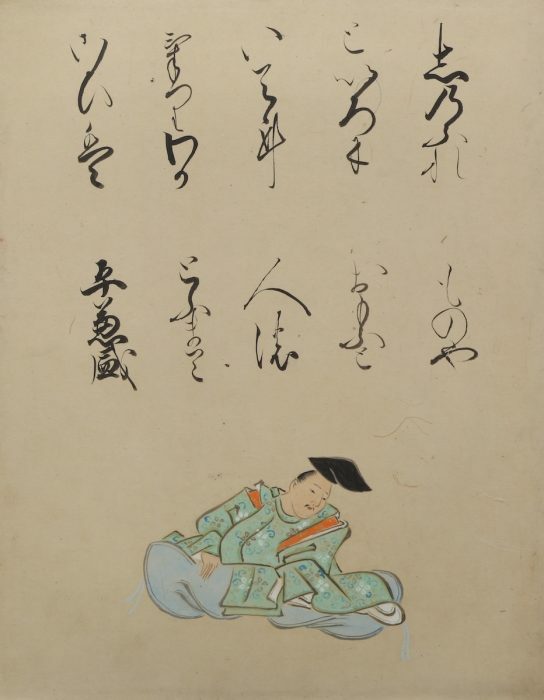 志乃ふれ
といろに
いてに
けりわか
こひ盤
ものや
おもふと
人濃
とふまて
平兼盛